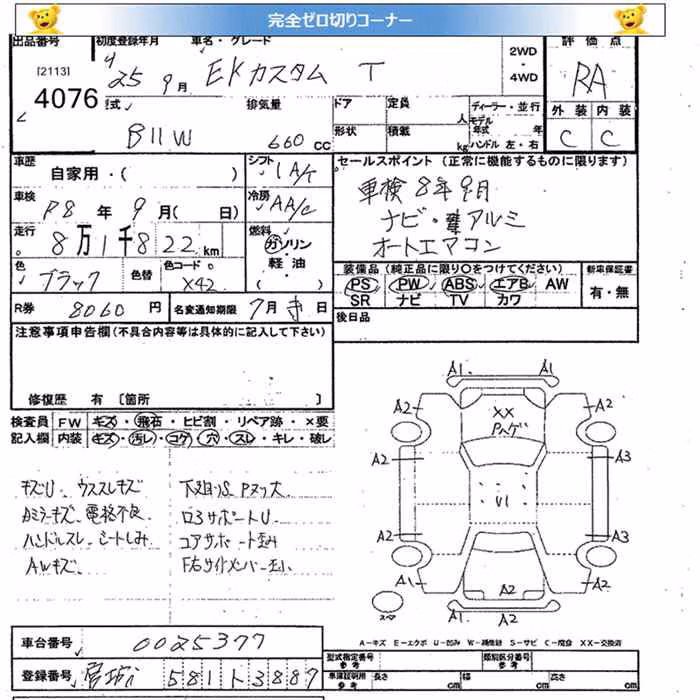 完全ゼロ切りコーナー
出品番号 初度登録年月 車名・グレード 2WD・4WD 評価点
[2113] 4076
25 9月 EKカスタム T RA
型式 排気量 ドア 定員 人 ディーラー・並行 外装 内装
B11W 660 CC 形状 積載 kg モデル年式 年 ハンドル 左・右 C C
車歴 自家用・( ) シフト IA/T セールスポイント (正常に機能するものに限ります)
車検 R8年 9月( 日) 冷房 AA/C 車検8年9月
走行 8万1千822km 燃料 ガソリン・軽油 ( ) ナビ・アルミ
オートエアコン
色 ブラック 色替 色コード X42 装備品 (純正品に限り○をつけてください) 新車保証書
PS PW ABS エアB AW 有・無
SR ナビ TV カワ
R券 8060円 名変通知期限 7月 日 後日品
注意事項申告欄(不具合内容等は具体的に記入して下さい)
修復歴 有 〔箇所 〕
検査員記入欄 FW キズ・飛石・ヒビ割・リペア跡・×要
内装 キズ・汚レ・コゲ・穴・スレ・キレ・破レ
A1 A1
A2 XX A2
Pハゲ
A2 A3
U1
A2 A3
A1 A2 A2
スペア A1 A2
キズU ウススレキズ
Aミラーキズ 電格不良 ロアサポートU
ハンドルスレ シートしみ コアサポート歪み
AWキズ
A-キズ E-エクボ U-凹み W-補修跡 S-サビ C-腐食 XX-交換済
車台番号 0025377
型式指定番号 参考 類別区分番号 参考
登録番号 581 ト 3887
車庫証明用 参考 長さ cm 幅 cm 高さ cm